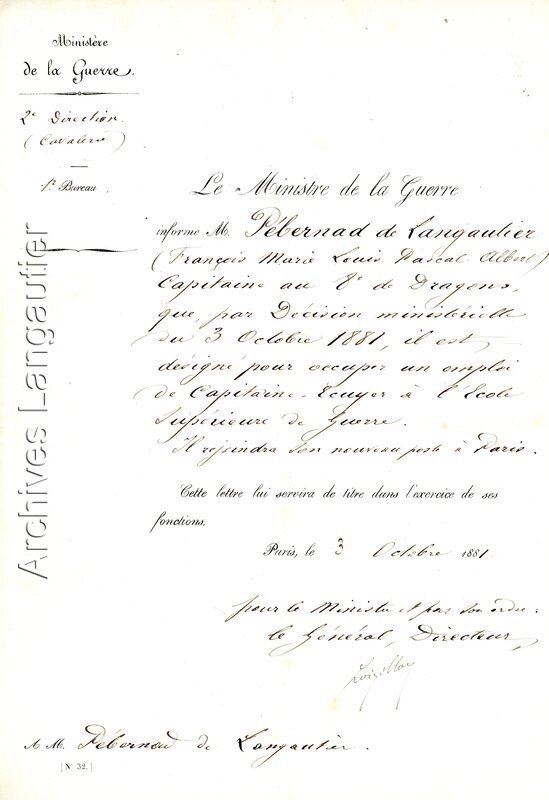 Ministère
de la Guerre.
2e Direction.
(Cavalerie)
1er Bureau
Archives Langautier
Le Ministre de la Guerre
informe M. Pébernad de Langautier
(François Marie Louis Pascal Albert)
Capitaine au 8e de Dragons,
que, par Décision ministérielle
du 3 Octobre 1881, il est
désigné pour occuper un emploi
de Capitaine-Ecuyer à l'Ecole
Supérieure de Guerre.
Il rejoindra son nouveau poste à Paris.
Cette lettre lui servira de titre dans l'exercice de ses
fonctions.
Paris, le 3 Octobre 1881.
pour le Ministre et par son ordre:
le Général, Directeur,
A M. Pébernad de Langautier.
[N° 32.]